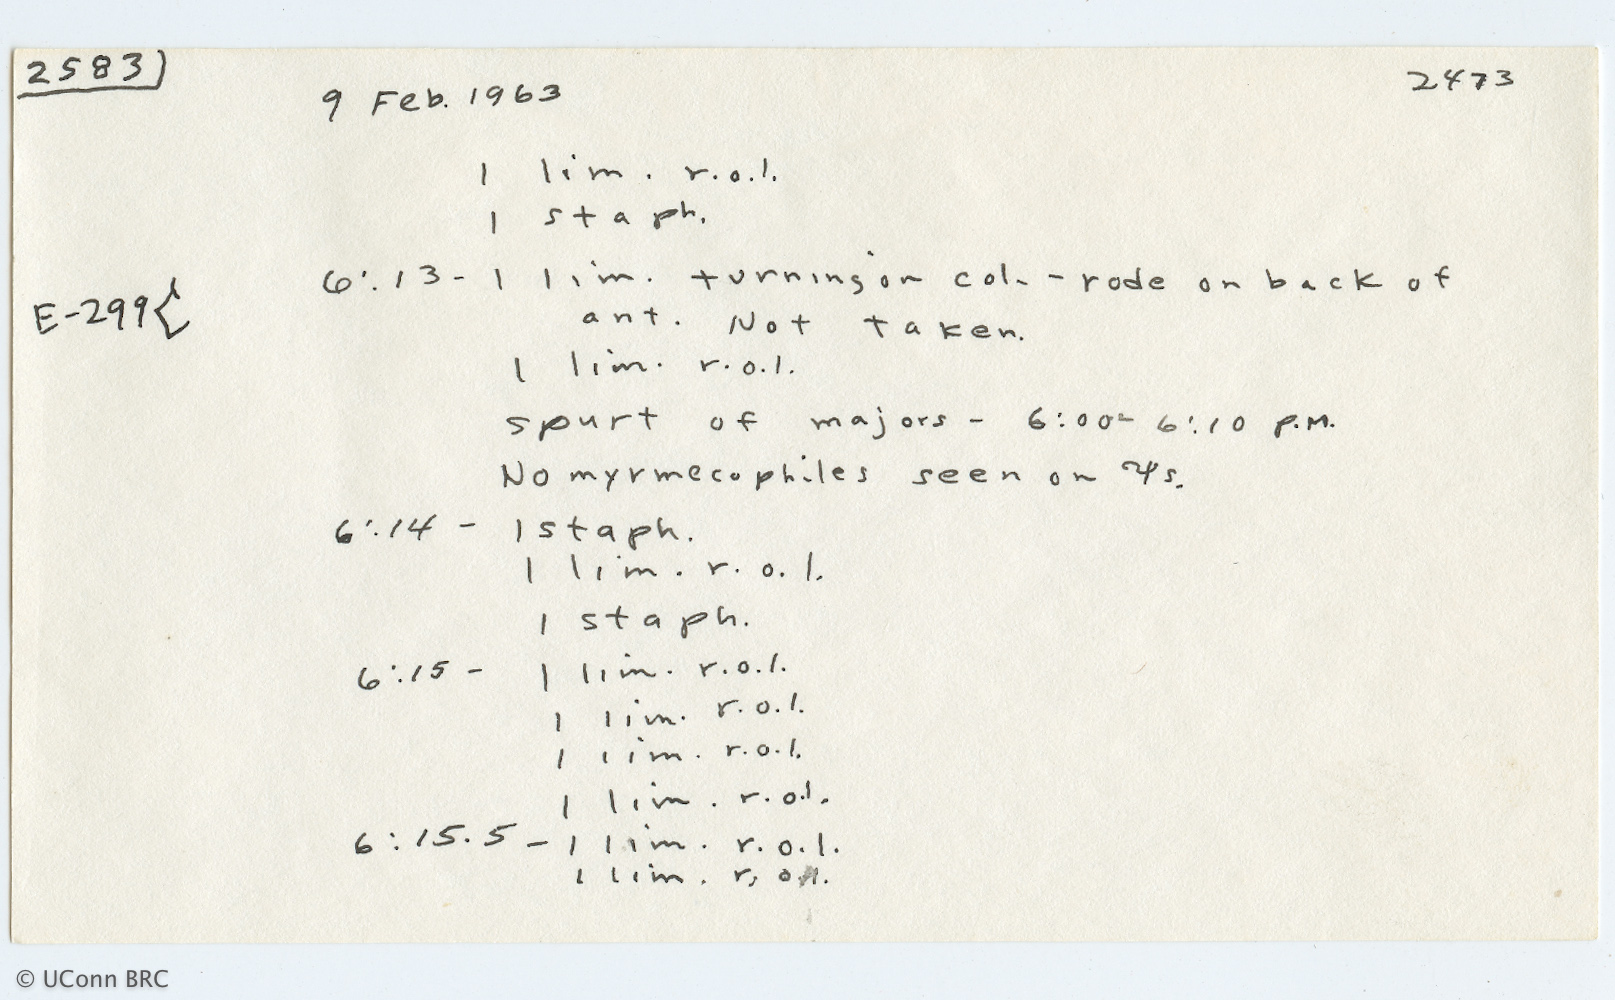 2583)
2473
9 Feb. 1963
1 lim. r.o.l.
1 staph.
6:13 - 1 lim. turning on col. - rode on back of
ant. Not taken.
E-299{
1 lim. r.o.l.
spurt of majors - 6:00 - 6:10 P.M.
No myrmecophiles seen on ♃s.
6:14 - 1 staph.
1 lim. r.o.l.
1 staph.
6:15 - 1 lim. r.o.l.
1 lim. r.o.l.
1 lim. r.o.l.
1 lim. r.o.l.
6:15.5 - 1 lim. r.o.l.
1 lim. r.o.l.
© UConn BRC